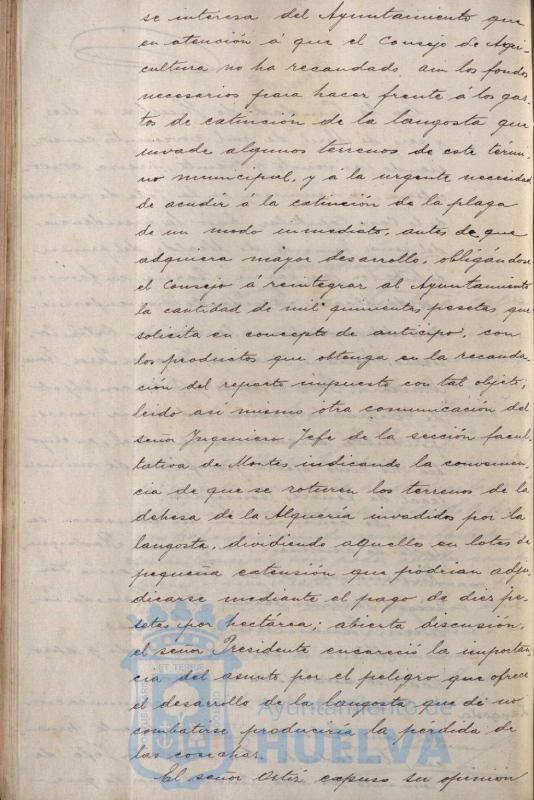 se interesa del Ayuntamiento que
en atención á que el Consejo de Agri-
cultura no ha recaudado aun los fondos
necesarios para hacer frente á los gas-
tos de extinción de la langosta que
invade algunos terrenos de este térmi-
no municipal, y á la urgente necesidad
de acudir á la extinción de la plaga
de un modo inmediato, antes de que
adquiera mayor desarrollo, obligándose
el Consejo á reintegrar al Ayuntamiento
la cantidad de mil quinientas pesetas que
solicita en concepto de anticipo, con
los productos que obtenga en la recauda-
ción del reparto impuesto con tal objeto,
leido asi mismo otra comunicación del
señor Ingeniero Jefe de la sección facul-
tativa de Montes indicando la convenien-
cia de que se roturen los terrenos de la
dehesa de la Alquería invadidos por la
langosta, dividiendo aquellos en lotes de
pequeña extensión que podrian adju-
dicarse mediante el pago de diez pe-
setas por hectárea; abierta discusión,
el señor Presidente encareció la importan-
cia del asunto por el peligro que ofrece
el desarrollo de la langosta que de no
combatirse produciría la pérdida de
las cosechas.
El señor Ortiz expuso su opinión
Ayuntamiento de
HUELVA